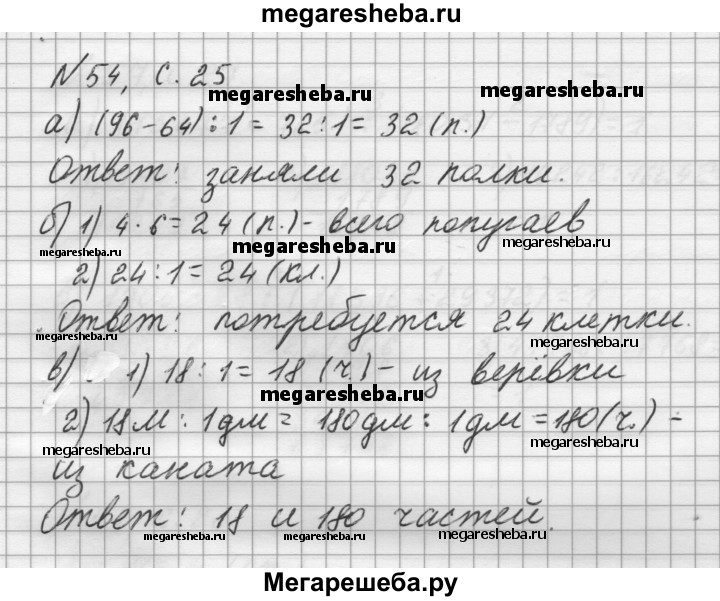 megaresheba.ru
N 54, с. 25
megaresheba.ru megaresheba.ru
а) (96-64) : 1 = 32 : 1 = 32 (п.)
Ответ: заняли 32 полки.
б) 1) 4 · 6 = 24 (п.) - всего попугаев
megaresheba.ru megaresheba.ru
2) 24 : 1 = 24 (кл.)
Ответ: потребуется 24 клетки.
megaresheba.ru megaresheba.ru
в) 1) 18 : 1 = 18 (ч.) - из верёвки
megaresheba.ru
2) 18м : 1дм = 180дм : 1дм = 180 (ч.) -
megaresheba.ru megaresheba.ru
из каната
Ответ: 18 и 180 частей.
megaresheba.ru megaresheba.ru megaresheba.ru
Мегарешеба.ру